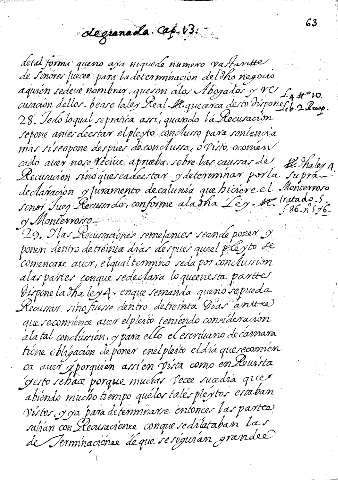 63
de granada. Cap. 13.
de tal forma que no aya ni quede numero
de Senores Jueces para la determinacion del dho negocio
a quien se deve nombrar, que son a los Abogados y re
cusacion de llos. bease la ley Real que cerca desto dispone
28. Todo lo qual se pratica assi, quando la Recusacion
se pone antes de estar el pleyto concluso para sentencia
mas si se opone despues de concluso, o visto, o comen
cado a ver no se recive a prueba, sobre las causas de
Recusacion sino que ca de estar y determinar por la
declaracion y juramento de calunia que hiciere el
senor Juez Recusado, conforme a la dha Ley
y Monterroso
29. Las Recusaciones semejantes se onde poner y
poner dentro de treinta dias despues que el pleyto se
comencare a ver, el qual termino se da por conclusion
a las partes con que se declara lo que en esta parte
dispone la dha ley 4. en que se manda que no se pueda
Recusar sino fuese dentro de treinta dias
que se comience a ver el pleyto teniendo consideracion
a la tal conclusion, y para ello el escrivano de camara
tiene obligacion de poner en el pleyto el dia que se comien
ca a ver y por quien assi en Vista como en Revista
y esto se hace porque muchas veces sucedia que
abiendo mucho tiempo que los tales pleytos estaban
vistos, y ya para determinarse entonces las partes
salian con Recusaciones con que se dilataban las
determinaciones de que se seguian grandes
Ley 10.
lib. 2 Recop.
dha ley
Supra
Monterroso
tratado 5